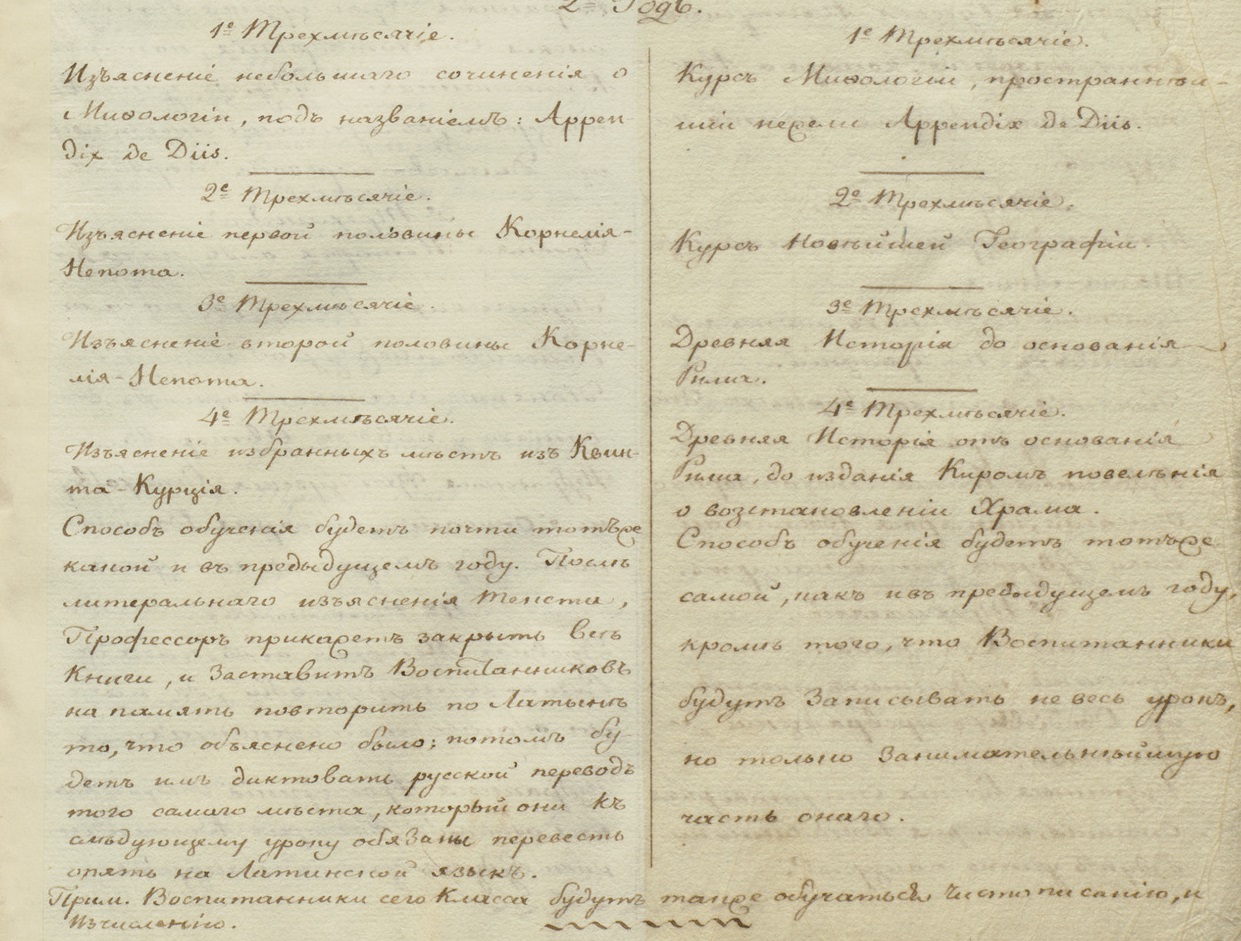 2й Годъ.
1е Трехмѣсячіе.
Изъясненіе небольшаго сочиненія о
Миѳологіи, подъ названіемъ: Appen-
dix de Diis.
2е Трехмѣсячіе.
Изъясненіе первой половины Корнелія-
Непота.
3е Трехмѣсячіе.
Изъясненіе второй половины Корне-
лія-Непота.
4е Трехмѣсячіе.
Изъясненіе избранныхъ мѣстъ изъ Квин-
та-Курція.
Способъ обученія будетъ почти тотъже
какой и въ предыдущемъ году. Послѣ
литеральнаго изъясненія текста,
Профессоръ прикажетъ закрыть всѣ
Книги, и заставитъ Воспитанниковъ
на память повторить по Латынѣ
то, что объяснено было; потомъ бу-
детъ имъ диктовать русской переводъ
того самаго мѣста, который они къ
слѣдующему уроку обязаны перевесть
опять на Латинской языкъ.
1е Трехмѣсячіе.
Курсъ Миѳологіи, пространнѣй-
шій нежели Appendix de Diis.
2е Трехмѣсячіе.
Курсъ Новѣйшей Географіи.
3е Трехмѣсячіе.
Древняя Исторія до основанія
Рима.
4е Трехмѣсячіе.
Древняя Исторія отъ основанія
Рима, до изданія Киромъ повелѣнія
о возстановленіи Храма.
Способъ обученія будетъ тотъже
самой, какъ и въ предыдущемъ году,
кромѣ того, что Воспитанники
будутъ записывать не весь урокъ,
но только занимательнѣйшую
часть онаго.
Прим. Воспитанники сего Класса будутъ также обучаться чистописанію, и
Изчисленію.